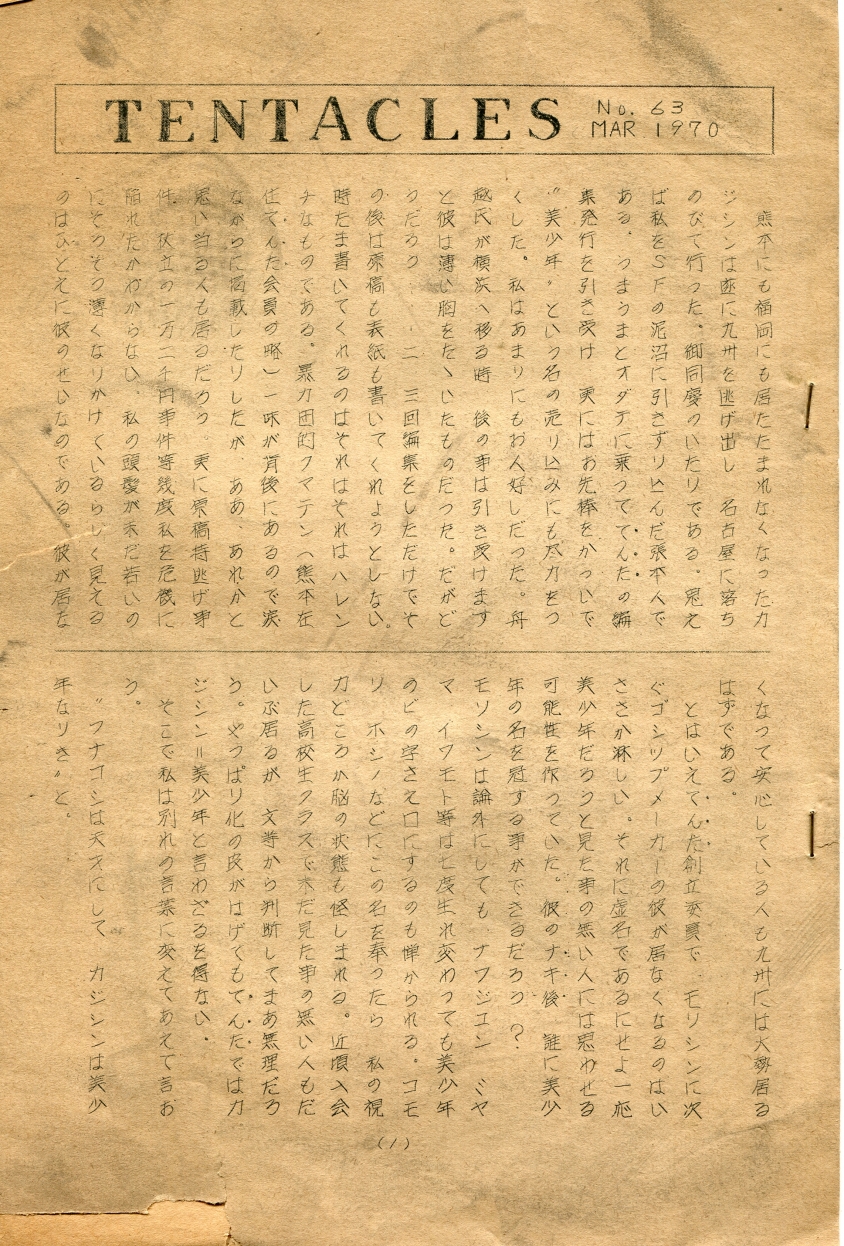 TENTACLES
No. 63
MAR 1970
熊本にも福岡にも居たたまれなくなったカ
ジシンは遂に九州を逃げ出し 名古屋に落ち
のびて行った。御同慶のいたりである。思え
ば私をSFの泥沼に引きずり込んだ張本人で
ある。うまうまとオダテに乗っててんたの編
集発行を引き受け 更にはお先棒をかついで
〝美少年〟という名の売り込みにも尽力をつ
くした。私はあまりにもお人好しだった。舟
越氏が横浜へ移る時 後の事は引き受けます
と彼は薄い胸をたゝいたものだった。だがど
うだろう・・・二 三回編集をしただけでそ
の後は原稿も表紙も書いてくれようとしない。
時たま書いてくれるのはそれはそれはハレン
チなものである。暴力団的クマテン(熊本在
住てんた会員の略)一味が背後にあるので涙
ながらに掲載したりしたが ああ、あれかと
思い当る人も居るだろう。更に原稿持逃げ事
件、 の一万二千円事件等幾度私を危機に
陥れたかわからない。私の頭髪が未だ若いの
にそろそろ薄くなりかけているらしく見える
のはひとえに彼のせいなのである。彼が居な
くなって安心している人も九州には大勢居る
はずである。
とはいえてんた創立委員で モリシンに次
ぐゴシップメーカーの彼が居なくなるのはい
ささか淋しい。それに虚名であるにせよ一応
美少年だろうと見た事の無い人には思わせる
可能性を作っていた。彼のナキ後 誰に美少
年の名を冠する事ができるだろう?
モリシンは論外にしても ナワジエン ミヤ
マ イワモト等は七度生れ変わっても美少年
のビの字さえ口にするのも憚かられる。コモ
リ ホシノなどにこの名を奉ったら 私の視
力どころか脳の状態も怪しまれる。近頃入会
した高校生クラスで未だ見た事の無い人もだ
いぶ居るが 文等から判断してまあ無理だろ
う。やっぱり化の皮がはげてもてんたではカ
ジシン=美少年と言わざるを得ない。
そこで私は別れの言葉に変えてあえて言お
う。
〝フナコシは天才にして カジシンは美少
年なりき〟と。
(1)